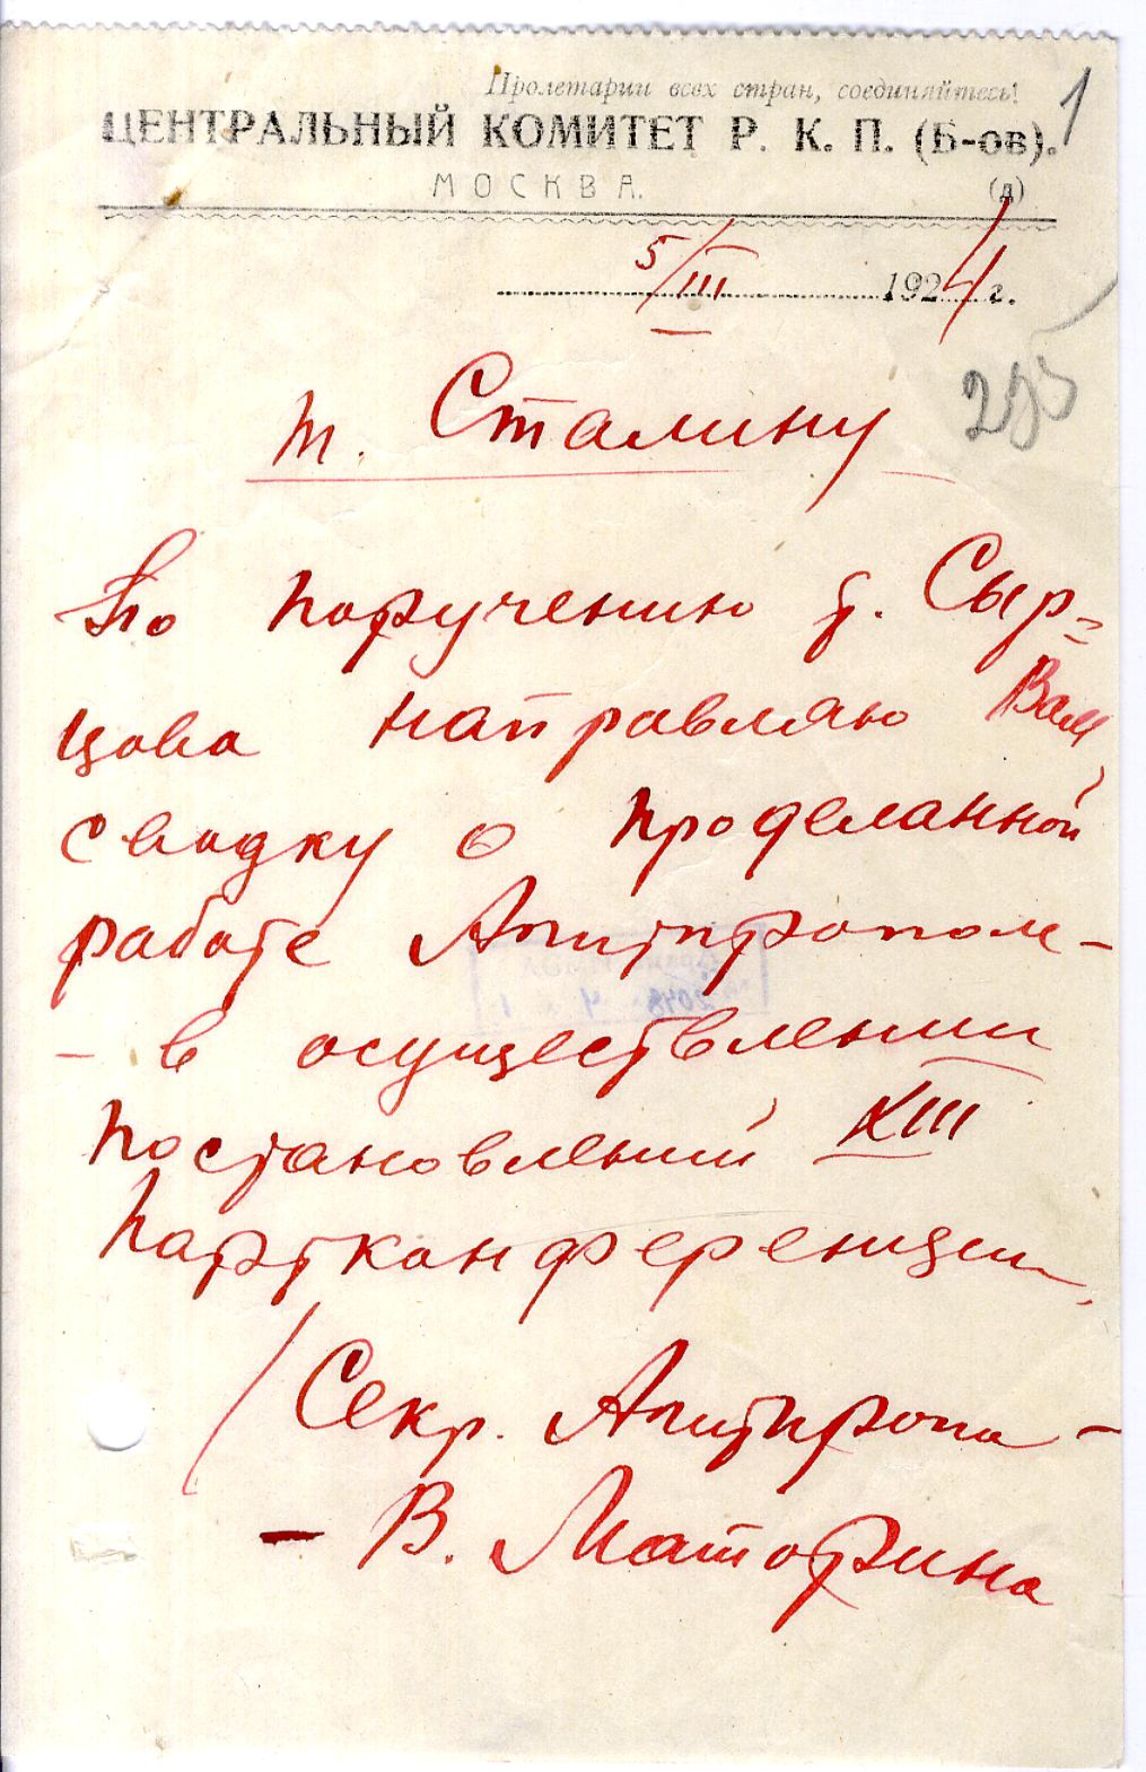 Пролетарии всех стран, соединяйтесь!
1
ЦЕНТРАЛЬНЫЙ КОМИТЕТ Р. К. П. (Б-ов).
МОСКВА.
(д)
5/III 1924 г.
т. Сталину
По поручению т. Сыр=
цова направляю Вам
сводку о проделанной
работе Агитпропом -
- в осуществлении
постановлений XIII
Партконференции,
Секр. Агитпропа -
- В. Маторина